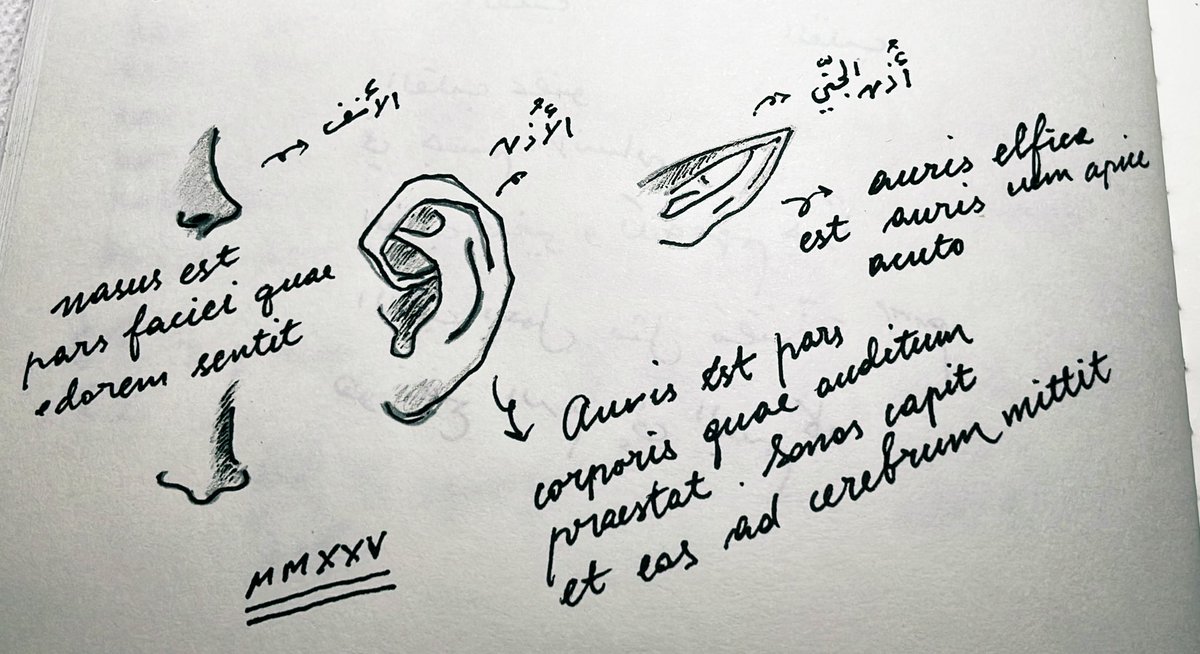 الأنف
nasus est
pars faciei quae
odorem sentit
الأُذن
أُذن الجنّي
auris elfica
est auris cum apice
acuto
Auris est pars
corporis quae auditum
praestat. Sonos capit
et eos ad cerebrum mittit
MMXXV